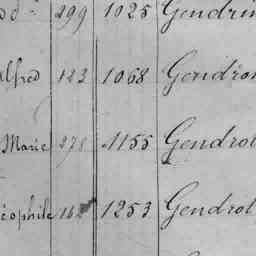 299 1025 Gendrin
Alfred 123 1068 Gendron
Marie 278 1155 Gendrot
éophile 162 1253 Gendrot